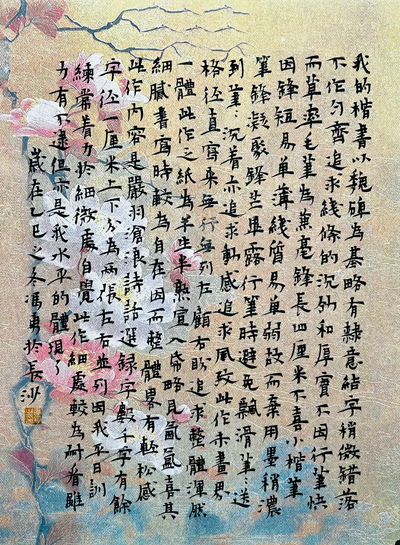 我的楷書以魏碑為基略有隸意結字稍微錯落
不作勻齊追求線條的沉劲和厚實不因行筆快
而草率毛筆為兼毫鋒長四厘米不喜小楷筆
因鋒短易單薄綫質易單弱故而棄用墨稍濃
筆鋒凝聚鋒芒畢露行筆時避免飄滑筆筆送
到筆筆沉着亦追求動感追求風致此作未畫界
格徑直寫來無行無列左顧右盼追求整體渾然
一體此作之紙為半生半熟宣入帋略見氤氲喜其
細膩書寫時較為自在因而整體畧有輕松感
此作内容是嚴羽滄浪詩話選録字數千字有餘
字徑一厘米上下分為兩張左右並列因我平日訓
練常着力於細微處自覺此作細處較為耐看雖
力有不逮但亦是我水平的體現了
歲在乙巳之冬馮勇於長沙